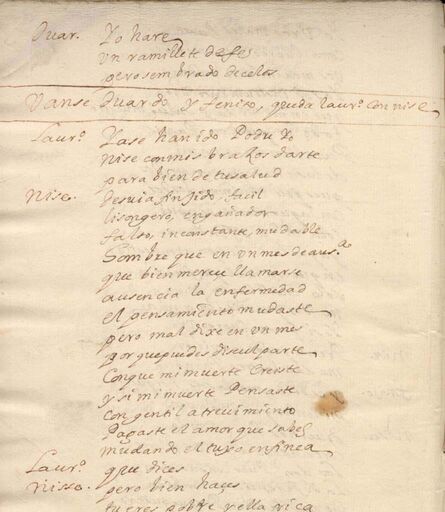 Duar. Yo hare
un ramillete de fee
pero sembrado de celos
Vanse Duardo y feniso, queda laur.o con nise
Laur.o Ya se han ido Podre yo
Nise con mis brazos darte
para bien de tu salud
Nise. desvia finjido, facil
lisongero, engañador
falso, inconstante, mudable
hombre que en un mes de aus.a
que bien merece llamarse
ausencia la enfermedad
el pensamiento mudaste
pero mal dixe en un mes
porque puedes disculparte
con que mi muerte creiste
y si mi muerte Pensaste
con gentil atrevimiento
Pagaste el amor que sabes
mudando el tuyo en finea
Laur.o que dices
Nisse. pero bien haces
tu eres pobre y ella rica